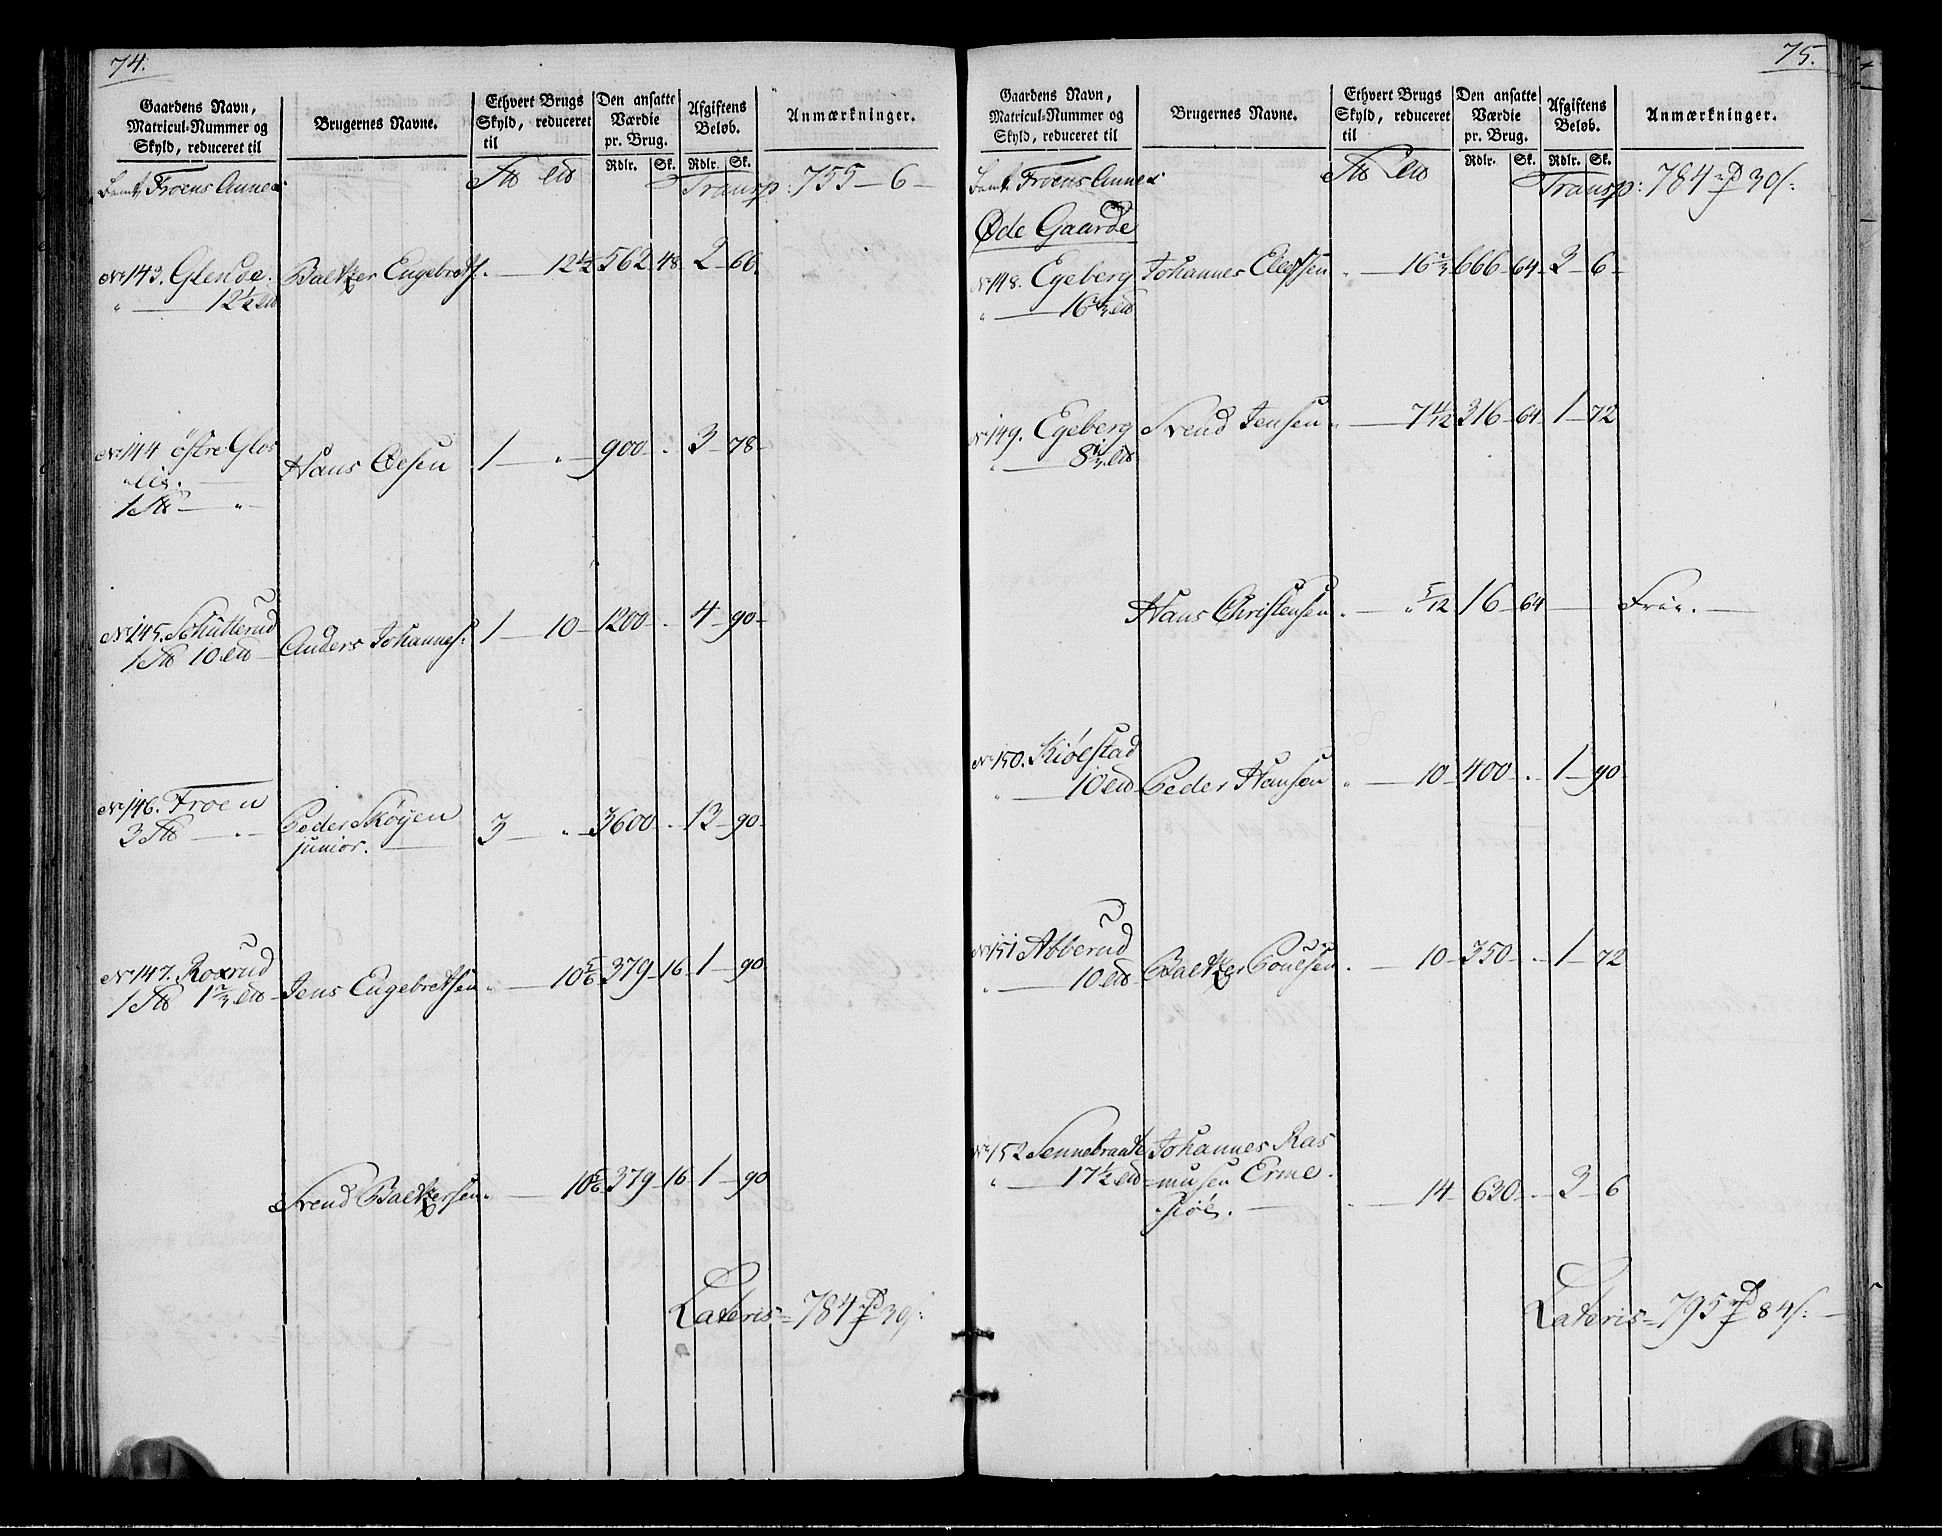 74.
Gaardens Navn, Matricul-Nummer og Skyld, reduceret til
Brugernes Navne.
Ethvert Brugs Skyld, reduceret til
Den ansatte Værdie pr. Brug.
Rdlr. Sk.
Afgiftens Beløb.
Rdlr. Sk.
Anmærkninger.
Froens Annex
Transp: 755 — 6 —
No 143. Glende. Baltzer Engebrets. „ — 12½ 562 48 2 — 66.
„ — 12½
No 144 østre Glos
lie. Hans Olsen 1 — „ — 900 — „ 3 — 78 —
1 — „ —
No 145. Schutterud Anders Johannes: 1 — 10 — 1200 „ 4 — 90 —
1 10
No 146. Froen Peder Skøyen 3 — „ — 3600 „ 13 — 90 —
3 — „ — junior.
No 147. Roxrud
1 1⅔ Jens Engebretsen „ — 10⅚ 379 — 16 1 — 90
Svend Baltzersen „ — 10⅚ 379 — 16 1 — 90
Lateris = 784 rd 30 s:
75.
Gaardens Navn, Matricul-Nummer og Skyld, reduceret til
Brugernes Navne.
Ethvert Brugs Skyld, reduceret til
Den ansatte Værdie pr. Brug.
Rdlr. Sk.
Afgiftens Beløb.
Rdlr. Sk.
Anmærkninger.
Froens Annex
Transp: 784 rd 30 s:
Øde Gaarde
No 148. Egeberg Johannes Ellefsen „ — 16⅔ 666 — 64 3 — 6 —
„ — 16⅔
No 149. Egeberg Svend Jensen „ — 7 11/12 316 — 64 1 — 72
„ — 8⅓
Hans Christensen „ — „ 5/12 16 — 64 — Frie. —
No 150. Kiølstad
„ — 10 Peder Hansen „ — 10 — 400 — „ 1 — 90
No 151 Abberud
„ — 10 Baltzer Poulsen „ — 10 — 350 — „ 1 — 72
No 152 Sennebraate Johannes Ras
„ — 17½ musen Erme
siøe. — „ — 14 — 630 — „ 3 — 6
Lateris = 795 rd 84 s: —